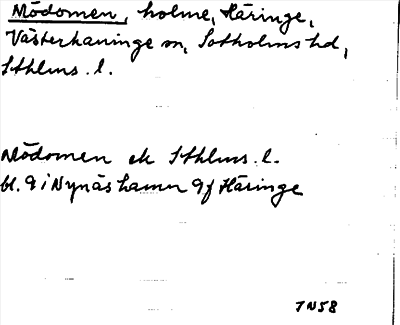 Mödomen, holme, Häringe,
Västerhaninge sn, Sotholms hd,
Sthlms. l.
Mödomen ek Sthlms. l.
bl. 9 i Nynäshamn 9f Häringe
7N58